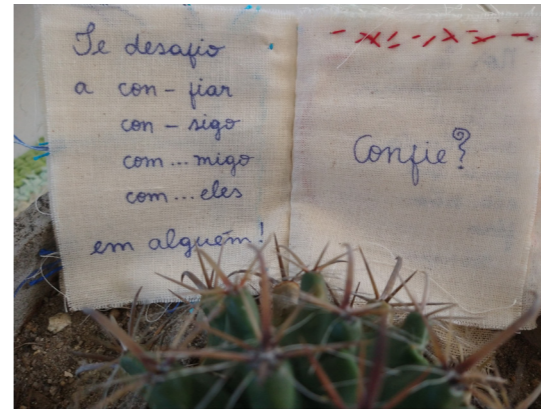 Te desafio
a con-fiar
con-sigo
com...migo
com...eles
em alguém!
Confie?